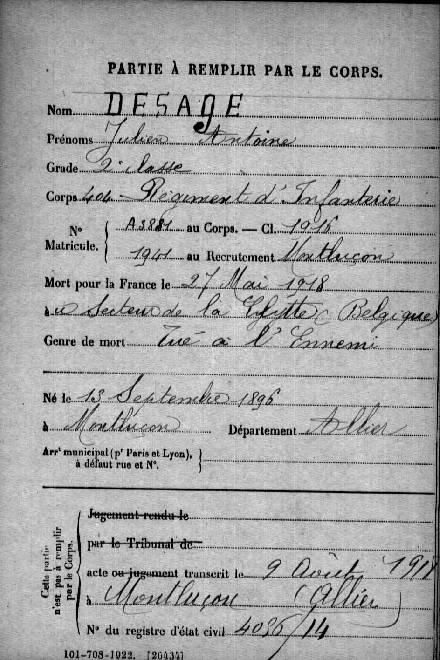 PARTIE À REMPLIR PAR LE CORPS.
Nom DESAGE
Prénoms Julien Antoine
Grade 2e classe
Corps 404 Régiment d'Infanterie
N° Matricule. { A3881 au Corps. — Cl. 1916
1941 au Recrutement Montluçon
Mort pour la France le 27 Mai 1918
à Secteur de la (Belgique)
Genre de mort Tué à l'Ennemi
Né le 13 Septembre 1896
à Montluçon Département Allier
Arrt municipal (pr Paris et Lyon), à défaut rue et N°. }
Cette partie n'est pas à remplir par le Corps.
Jugement rendu le
par le Tribunal de
acte ou jugement transcrit le 9 Août
à Montluçon (Allier)
N° du registre d'état civil 4036/14
101-708-1922. [26434]